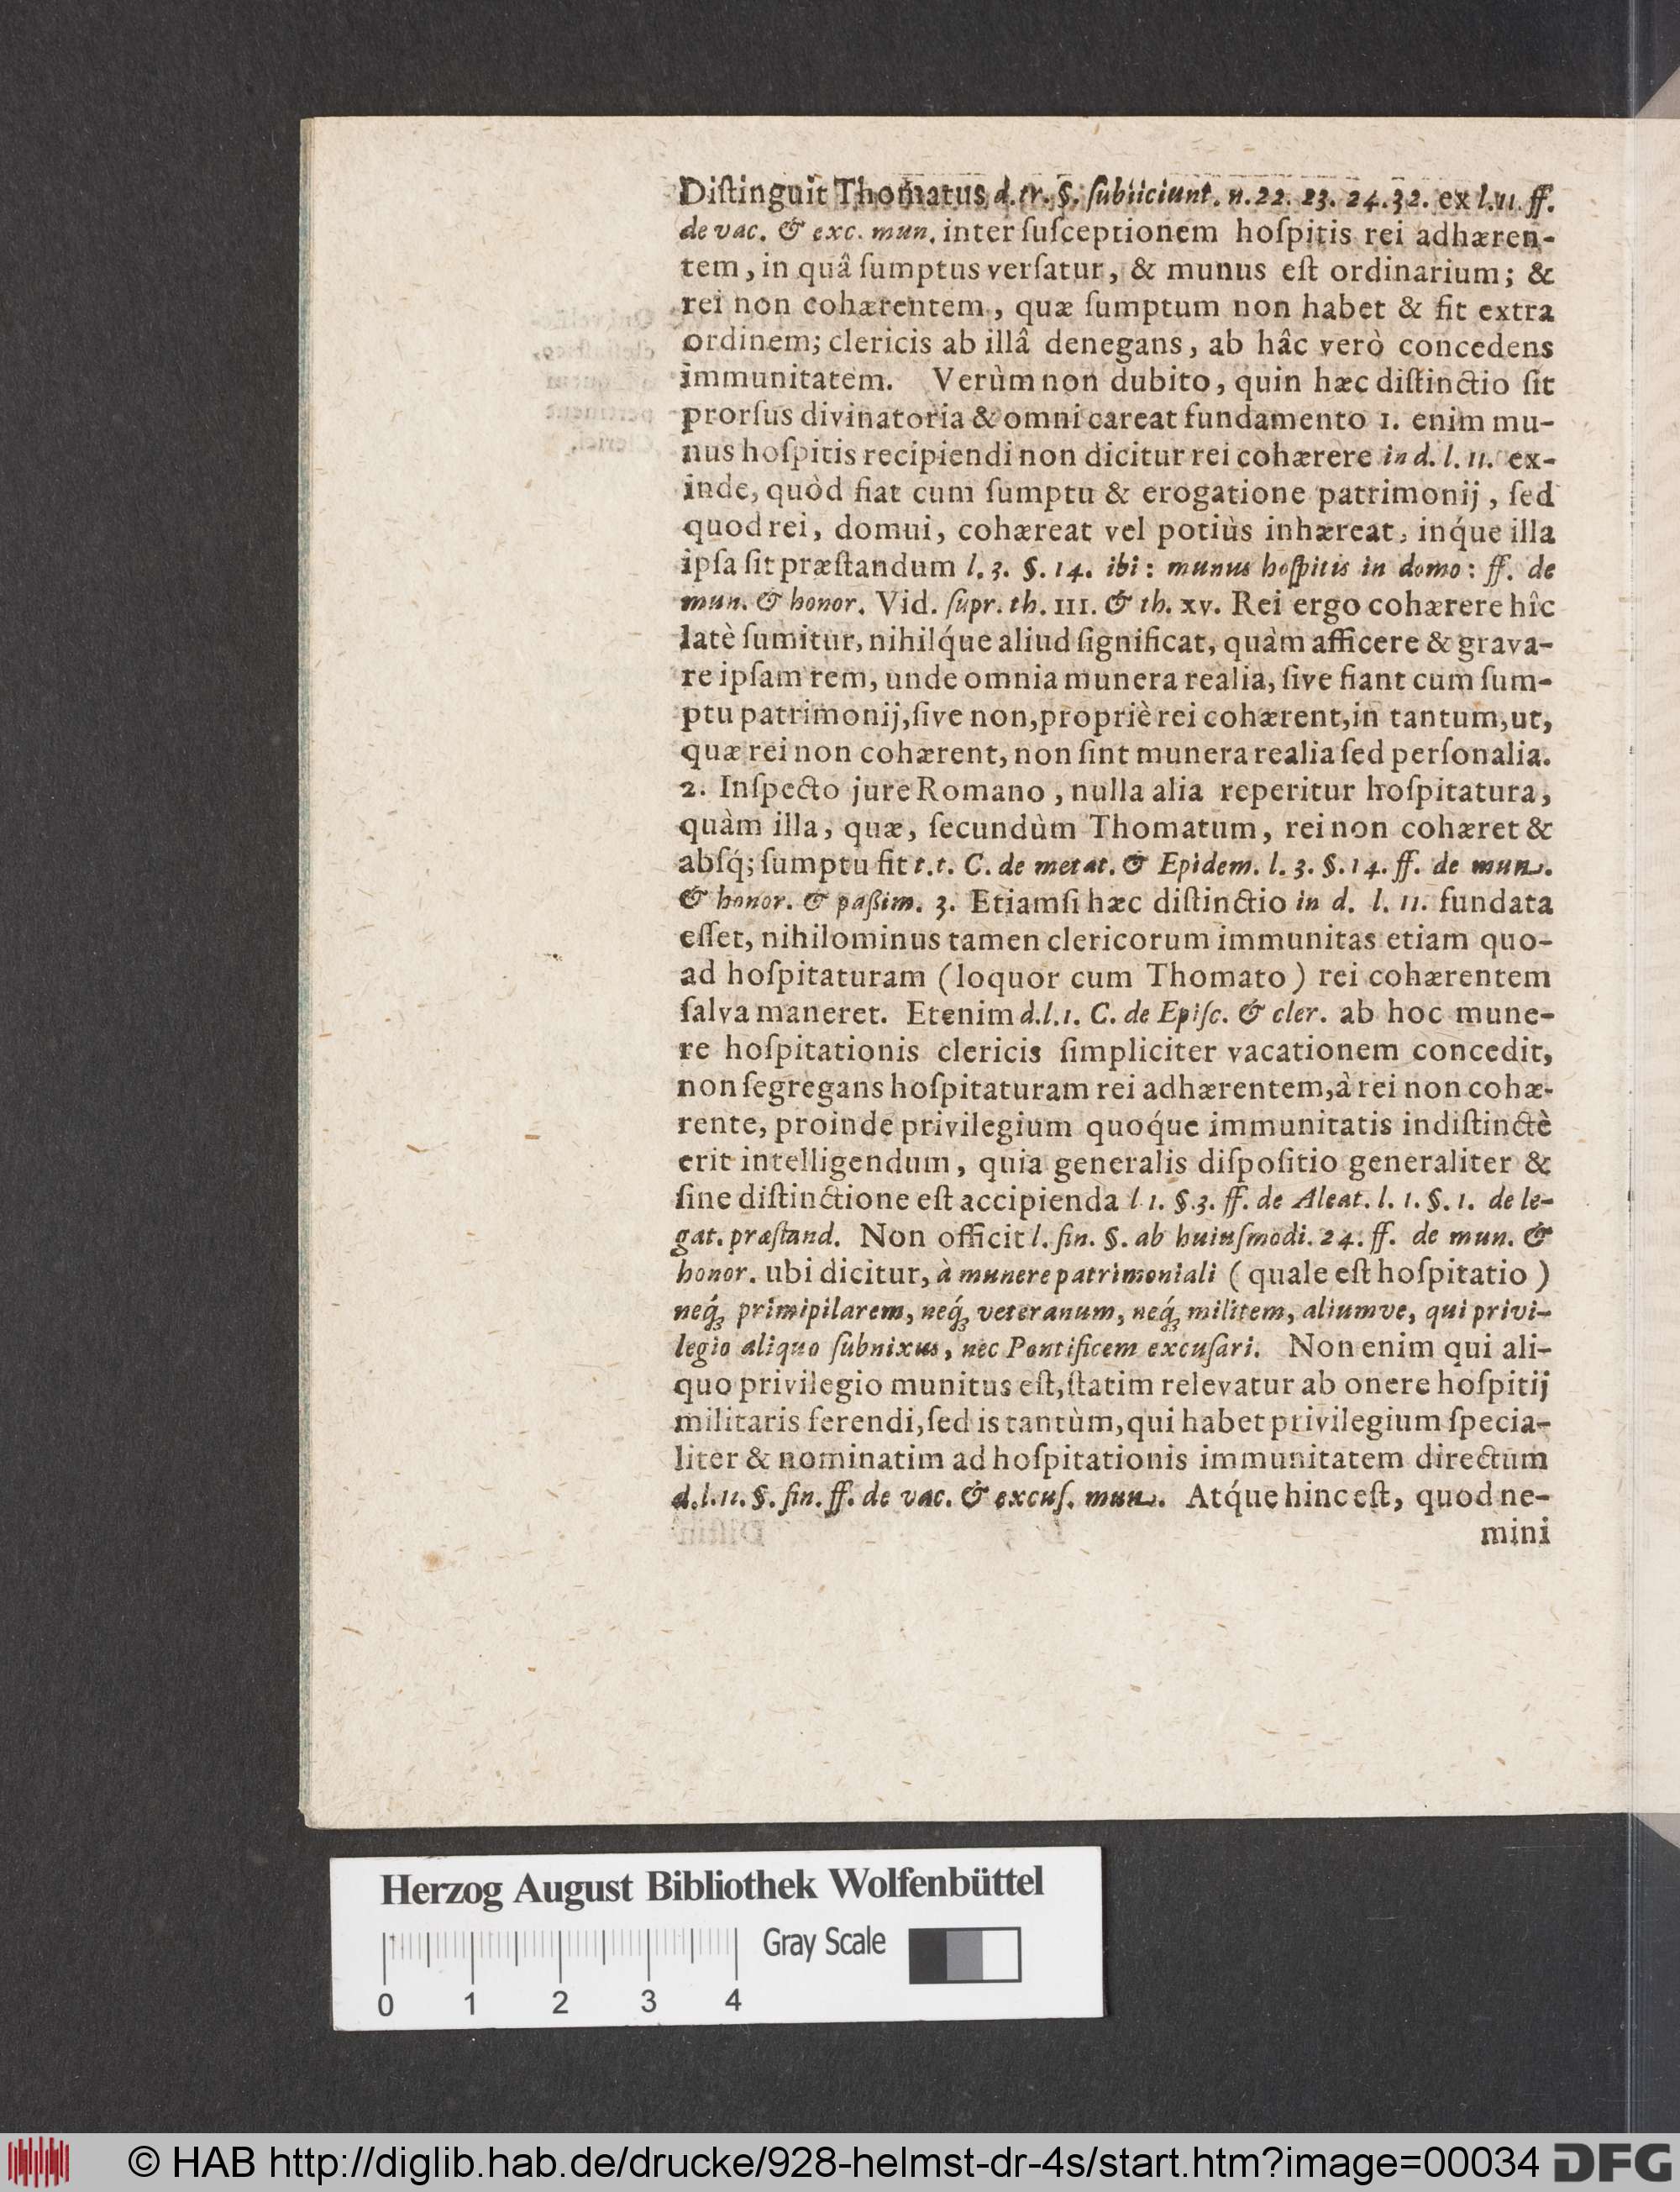 Diſtinguit Thomatus d. tr. §. ſubiiciunt. n. 22. 23. 24. 32. ex l. 11. ff.
de vac. & exc. mun. inter ſuſceptionem hoſpitis rei adhæren-
tem, in quâ ſumptus verſatur, & munus eſt ordinarium; &
rei non cohærentem, quæ ſumptum non habet & fit extra
ordinem; clericis ab illâ denegans, ab hâc verò concedens
immunitatem. Verùm non dubito, quin hæc diſtinctio ſit
prorſus divinatoria & omni careat fundamento 1. enim mu-
nus hoſpitis recipiendi non dicitur rei cohærere in d. l. 11. ex-
inde, quòd fiat cum ſumptu & erogatione patrimonij, ſed
quod rei, domui, cohæreat vel potiùs inhæreat, inq́ue illa
ipſa ſit præſtandum l. 3. §. 14. ibi: munus hoſpitis in domo: ff. de
mun. & honor. Vid. ſupr. th. III. & th. xv. Rei ergo cohærere hîc
latè ſumitur, nihilq́ue aliud ſignificat, quàm afficere & grava-
re ipſam rem, unde omnia munera realia, ſive fiant cum ſum-
ptu patrimonij, ſive non, propriè rei cohærent, in tantum, ut,
quæ rei non cohærent, non ſint munera realia ſed perſonalia.
2. Inſpecto jure Romano, nulla alia reperitur hoſpitatura,
quàm illa, quæ, ſecundùm Thomatum, rei non cohæret &
abſq́; ſumptu fit t. t. C. de metat. & Epidem. l. 3. §. 14. ff. de mun.
& honor. & paßim. 3. Etiamſi hæc diſtinctio in d. l. 11. fundata
eſſet, nihilominus tamen clericorum immunitas etiam quo-
ad hoſpitaturam (loquor cum Thomato) rei cohærentem
ſalva maneret. Etenim d. l. 1. C. de Epiſc. & cler. ab hoc mune-
re hoſpitationis clericis ſimpliciter vacationem concedit,
non ſegregans hoſpitaturam rei adhærentem, à rei non cohæ-
rente, proinde privilegium quoq́ue immunitatis indiſtinctè
erit intelligendum, quia generalis diſpoſitio generaliter &
ſine diſtinctione eſt accipienda l 1. §. 3. ff. de Aleat. l. 1. §. 1. de le-
gat. præſtand. Non officit l. fin. §. ab huiuſmodi. 24. ff. de mun. &
honor. ubi dicitur, à munere patrimoniali (quale eſt hoſpitatio)
neq́ꝫ primipilarem, neq́ꝫ veteranum, neq́ꝫ militem, aliumve, qui privi-
legio aliquo ſubnixus, nec Pontificem excuſari. Non enim qui ali-
quo privilegio munitus eſt, ſtatim relevatur ab onere hoſpitij
militaris ferendi, ſed is tantùm, qui habet privilegium ſpecia-
liter & nominatim ad hoſpitationis immunitatem directum
d. l. 11. §. fin. ff. de vac. & excuſ. mun. Atq́ue hinc eſt, quod ne-
mini
Herzog August Bibliothek Wolfenbüttel
Gray Scale
0 1 2 3 4
© HAB http://diglib.hab.de/drucke/928-helmst-dr-4s/start.htm?image=00034 DFG